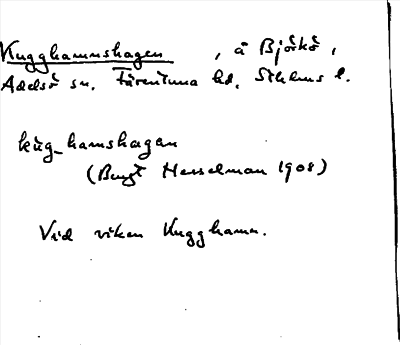 Kugghamnshagen, å Björkö,
Adelsö sn. Färentuna hd. Sthlms l.
kùg_hamshagan
(Bengt Hesselman 1908)
Vid viken Kugghamn.